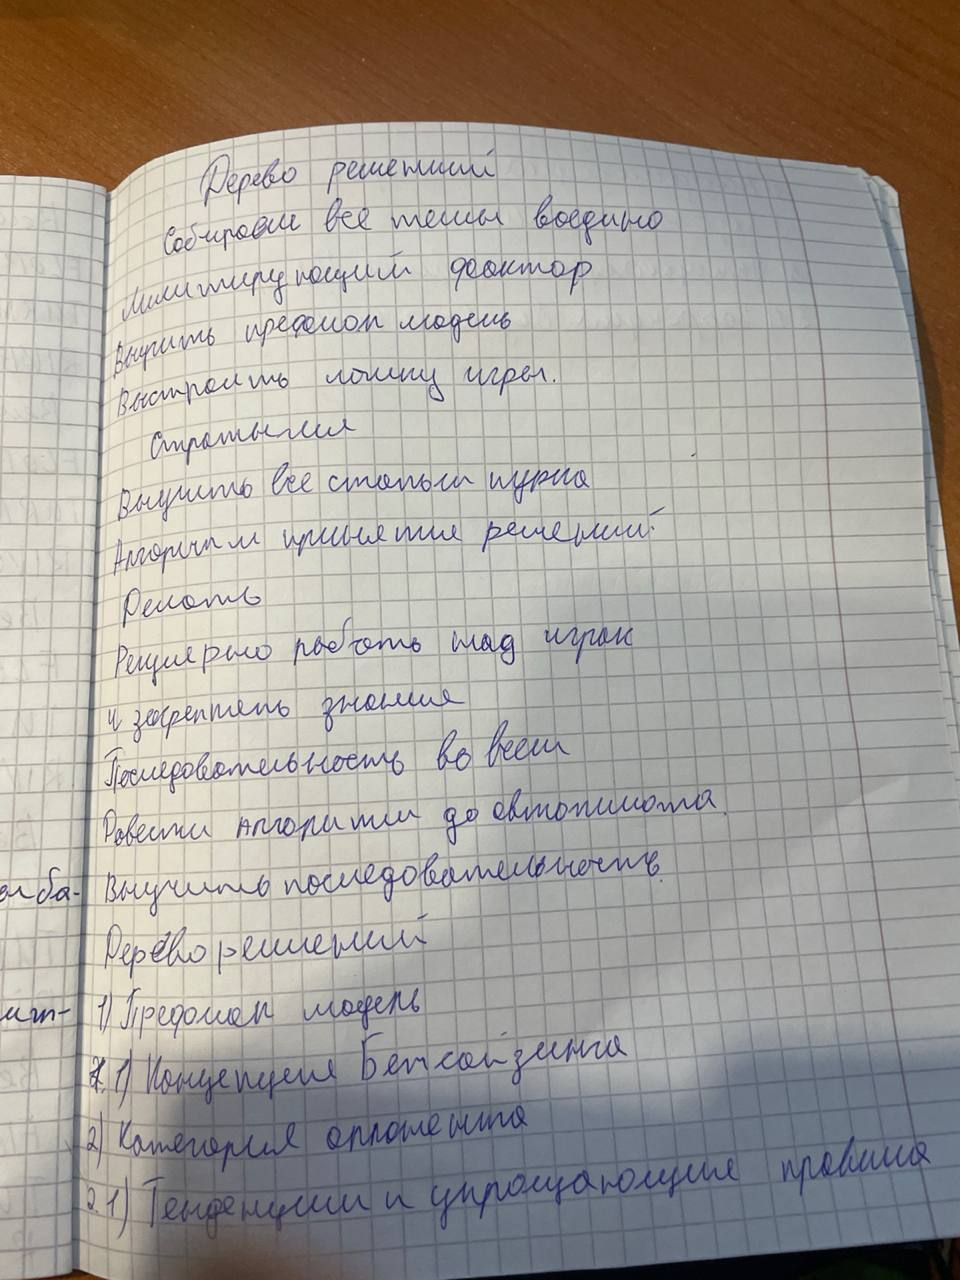 Дерево решений
Собираем все темы воедино
Лимитирующий фактор
Выучить префлоп модель
Выстроить логику игры.
Стратегия
Выучить все статьи курса
Алгоритм принятия решений:
Делать
Регулярно работать над игрок
и закреплять знания
Последовательность во всем
Довести алгоритм до автопилота.
ба-
Выучить последовательность.
Дерево решений
1) Префлоп модель
1.1) Концепция Бетсайзинга
2) Категория оппонента
2.1) Тенденции и упрощающие правила